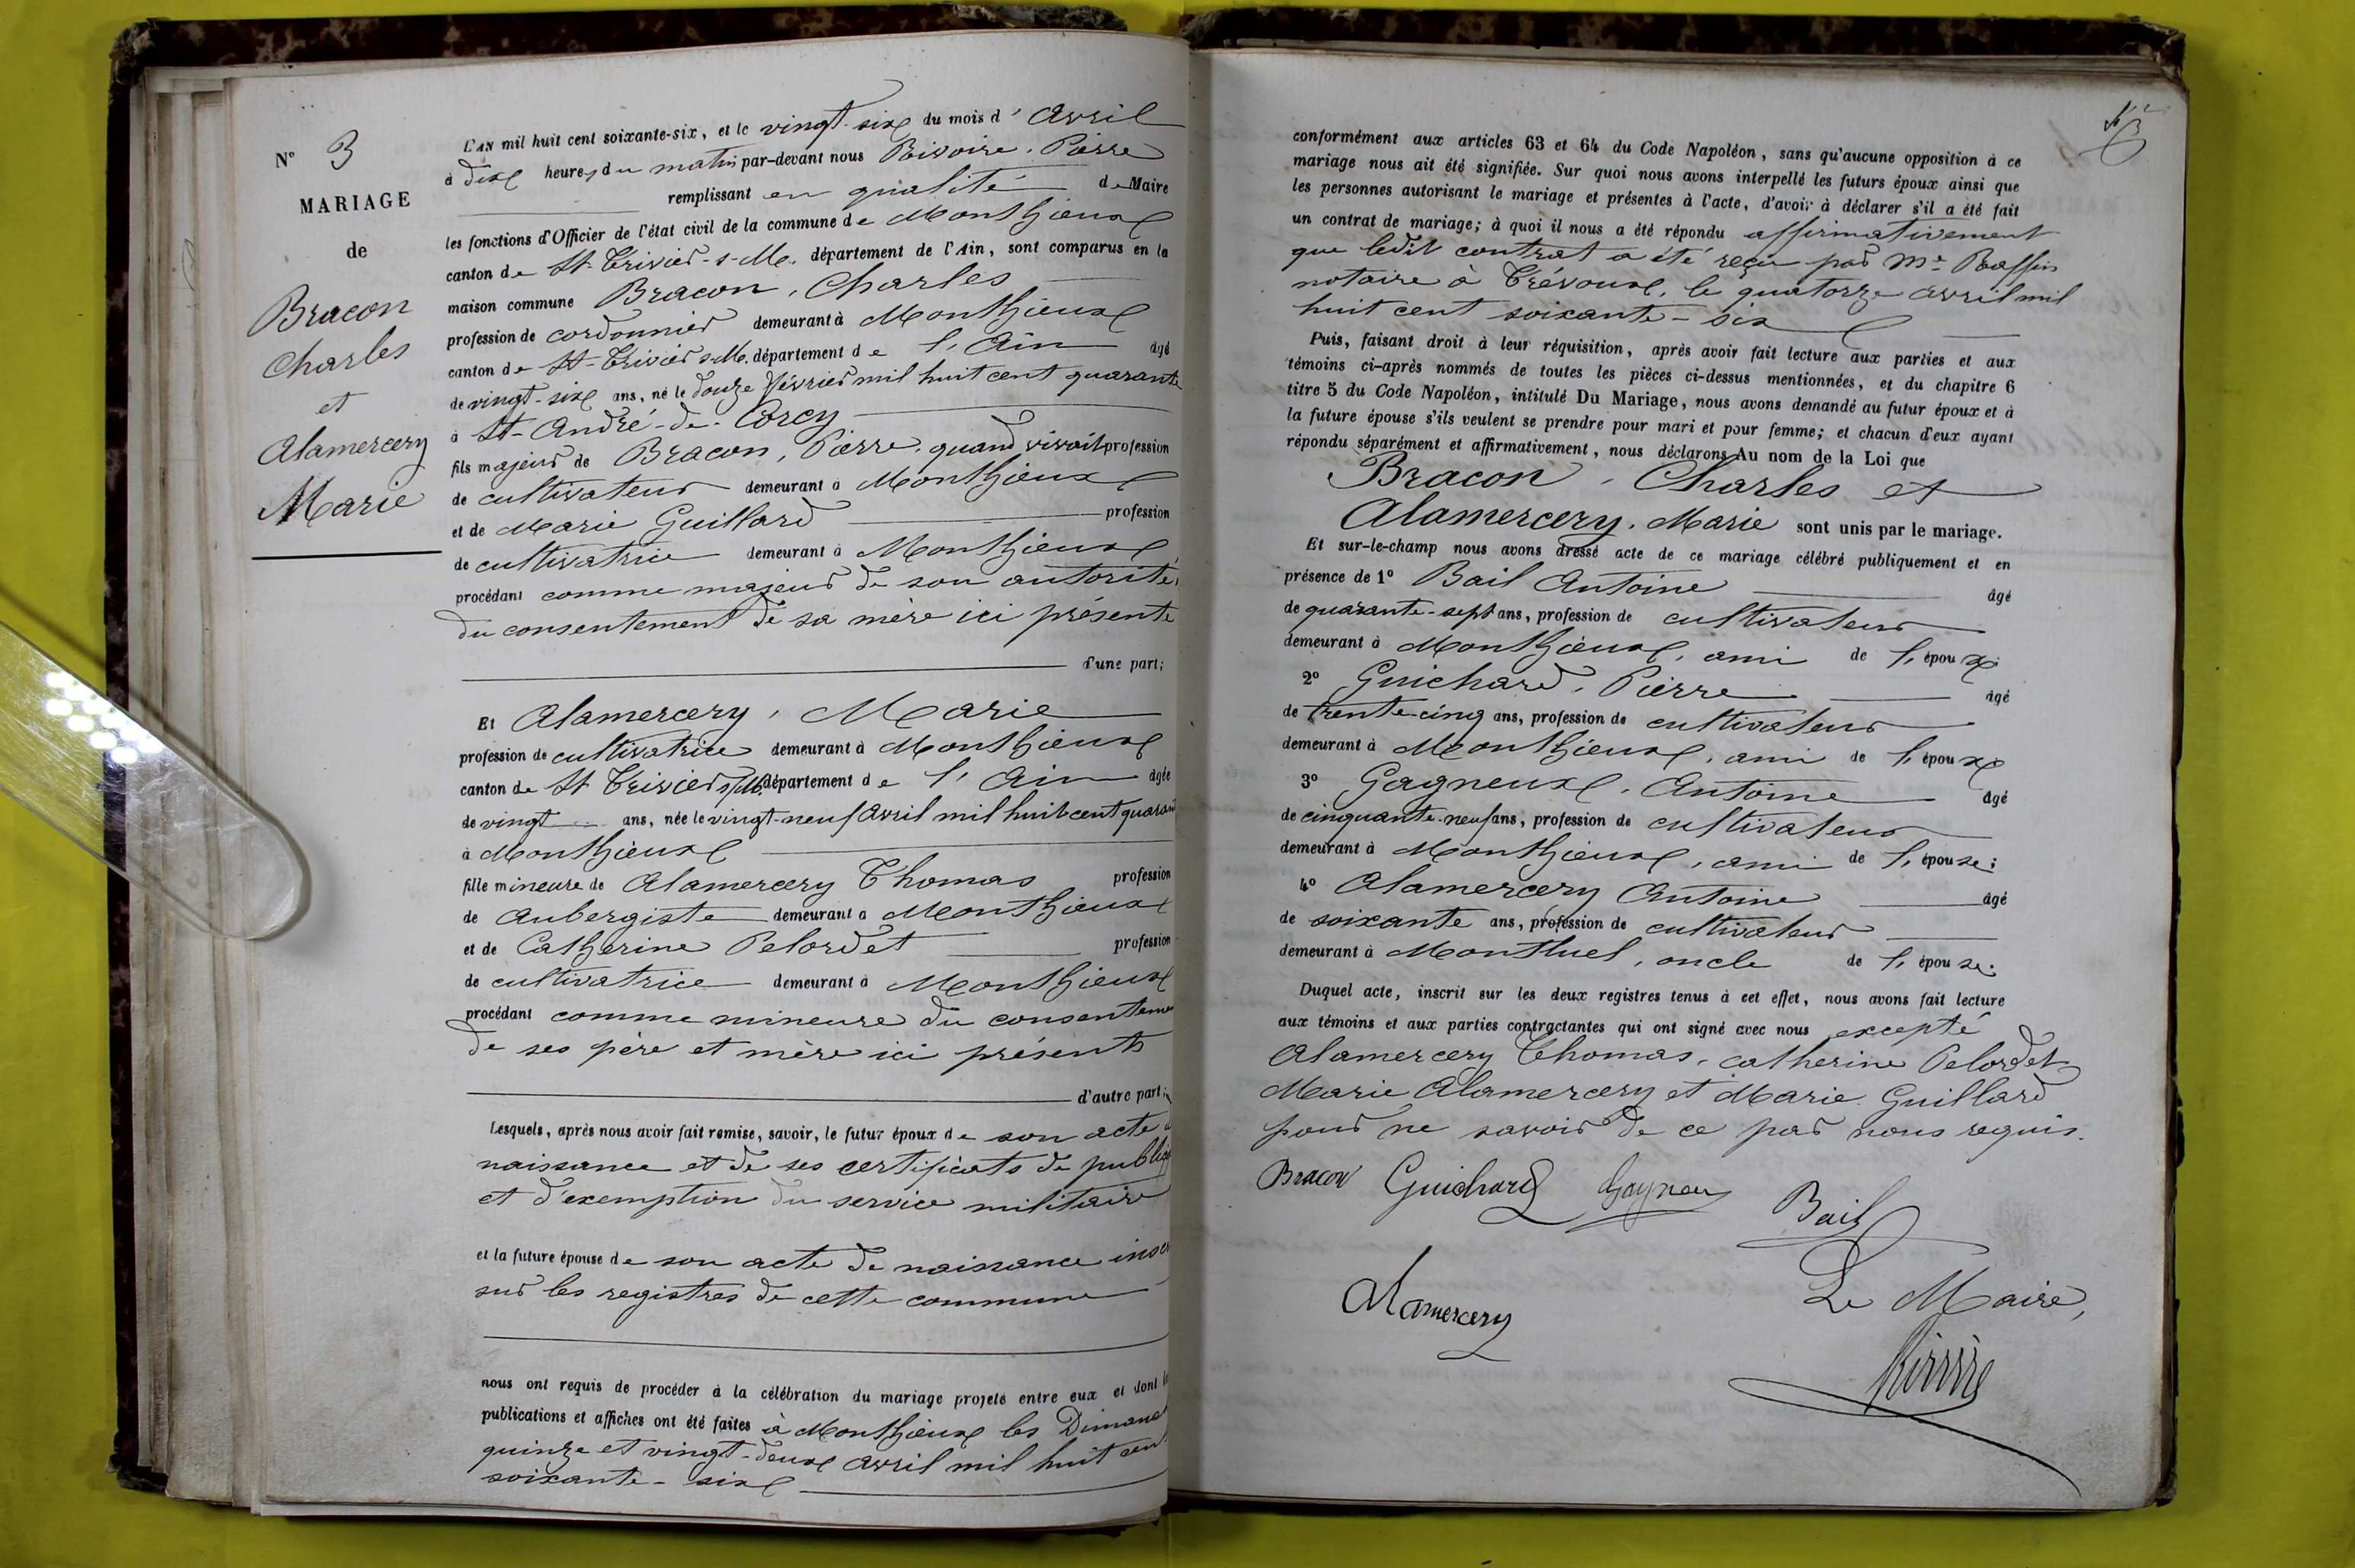 N° 3
MARIAGE
de
Bracon
Charles
et
Alamercery
Marie
L'AN mil huit cent soixante-six, et le vingt-six du mois d'Avril
à dix heures du matin par-devant nous Rivoire, Pierre
remplissant en qualité de Maire
les fonctions d'Officier de l'état civil de la commune de Monthieux
canton de St-Trivier-s-M. département de l'Ain, sont comparus en la
maison commune Bracon, Charles
profession de cordonnier demeurant à Monthieux
canton de St-Trivier s.M. département de l'Ain âgé
de vingt-six ans, né le douze février mil huit cent quarante
à St-André-de-Corcy
fils majeur de Bracon, Pierre, quand vivait profession
de cultivateur demeurant à Monthieux
et de Marie Guillard profession
de cultivatrice demeurant à Monthieux
procédant comme majeur de son autorité,
du consentement de sa mère ici présente
d'une part;
Et Alamercery, Marie
profession de cultivatrice demeurant à Monthieux
canton de St Trivier s/M. département de l'Ain âgée
de vingt ans, née le vingt-neuf avril mil huit cent quaran
à Monthieux
fille mineure de Alamercery Thomas profession
de Aubergiste demeurant à Monthieux
et de Catherine Pelordet profession
de cultivatrice demeurant à Monthieux
procédant comme mineure du consenteme
de ses père et mère ici présents
d'autre part;
Lesquels, après nous avoir fait remise, savoir, le futur époux de son acte
naissance et de ses certificats de public
et d'exemption du service militaire
et la future épouse de son acte de naissance insc
sur les registres de cette commune
nous ont requis de procéder à la célébration du mariage projeté entre eux et dont
publications et affiches ont été faites à Monthieux les Dimanc
quinze et vingt-deux avril mil huit cen
soixante-six
conformément aux articles 63 et 64 du Code Napoléon, sans qu'aucune opposition à ce
mariage nous ait été signifiée. Sur quoi nous avons interpellé les futurs époux ainsi que
les personnes autorisant le mariage et présentes à l'acte, d'avoir à déclarer s'il a été fait
un contrat de mariage; à quoi il nous a été répondu affirmativement
que ledit contrat a été reçu par Me Raffin
notaire à Trévoux, le quatorze avril mil
huit cent soixante-six
Puis, faisant droit à leur réquisition, après avoir fait lecture aux parties et aux
témoins ci-après nommés de toutes les pièces ci-dessus mentionnées, et du chapitre 6
titre 5 du Code Napoléon, intitulé Du Mariage, nous avons demandé au futur époux et à
la future épouse s'ils veulent se prendre pour mari et pour femme; et chacun d'eux ayant
répondu séparément et affirmativement, nous déclarons Au nom de la Loi que
Bracon, Charles et
Alamercery, Marie sont unis par le mariage.
Et sur-le-champ nous avons dressé acte de ce mariage célébré publiquement et en
présence de 1° Bail Antoine âgé
de quarante-sept ans, profession de cultivateur
demeurant à Monthieux, ami de l'époux;
2° Guichard, Pierre âgé
de trente-cinq ans, profession de cultivateur
demeurant à Monthieux, ami de l'époux
3° Gagneux, Antoine âgé
de cinquante-neuf ans, profession de cultivateur
demeurant à Monthieux, ami de l'épouse;
4° Alamercery Antoine âgé
de soixante ans, profession de cultivateur
demeurant à Montluel, oncle de l'épouse.
Duquel acte, inscrit sur les deux registres tenus à cet effet, nous avons fait lecture
aux témoins et aux parties contractantes qui ont signé avec nous excepté
Alamercery Thomas, catherine Pelordet
Marie Alamercery et Marie Guillard
pour ne savoir de ce par nous requis.
Bracon Guichard Gagneux
Bail
Le Maire,
Alamercery
Rivoire